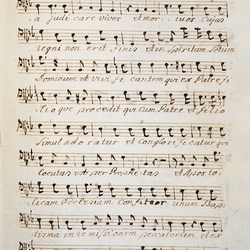 a judicare vivos et mor: tuos cujus
regni non erit finis et in Spiritum
Dominum et vivifi cantem qui ex Patre Fi
lio que procedit qui cum Patre et Filio
simul ado ratur et conglori ficatur qui
locutus est per Prophetas et Aposto
licam Ecclesiam Confiteor unum Bap
tisma in re missionem peccatorum